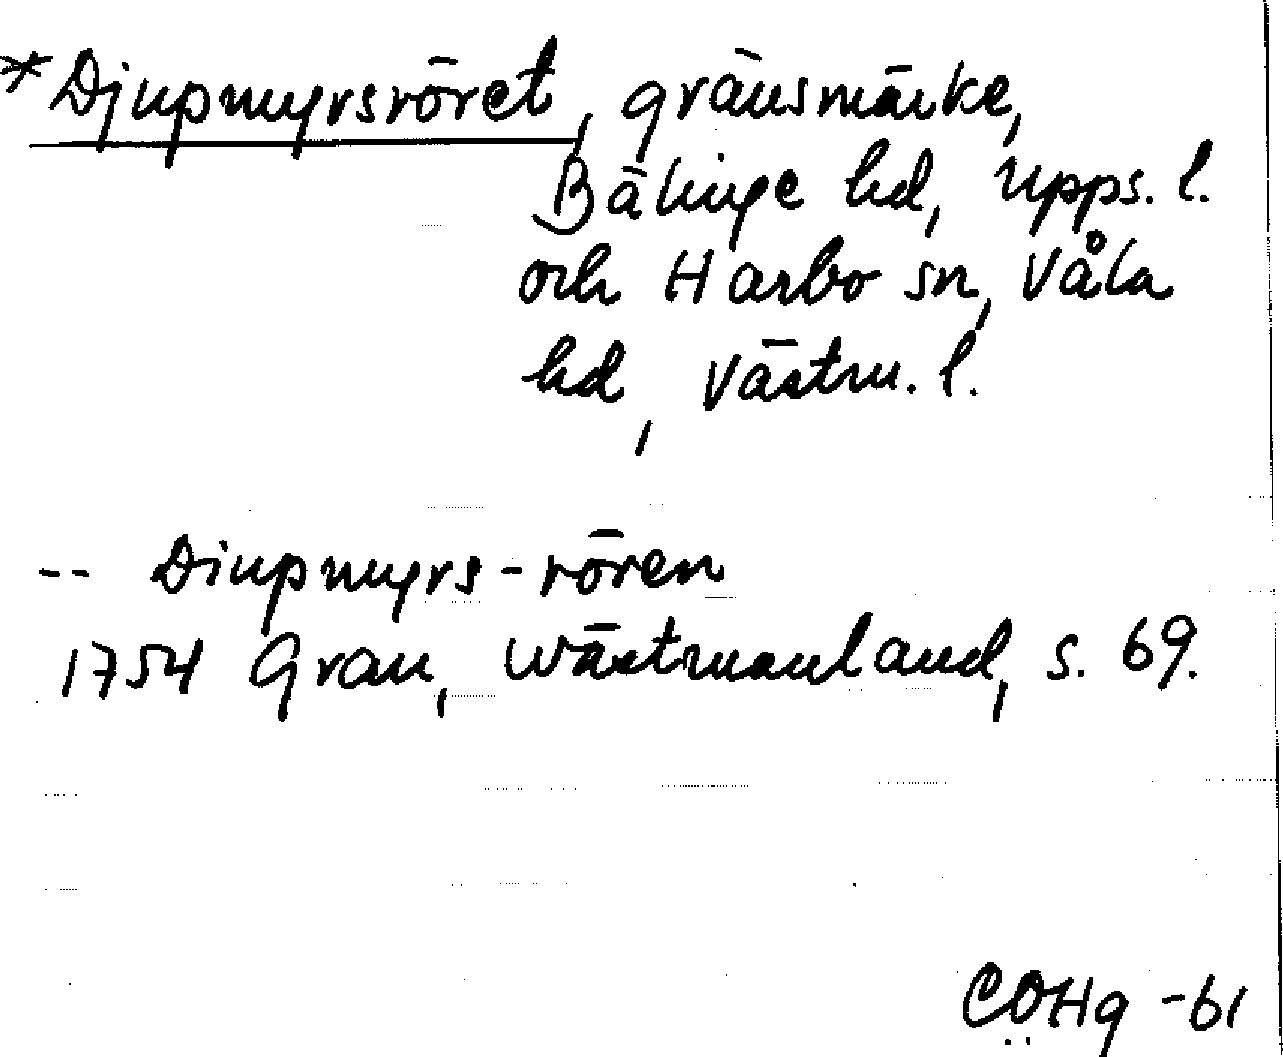 *Djupmyrsröret, gränsmärke,
Bälinge hd, Upps. l.
och Harbo sn, Våla
hd, Västm. l.
-- Diupmyrs-rören
1754 Grau, Wästmanland, s. 69.
COHg -61